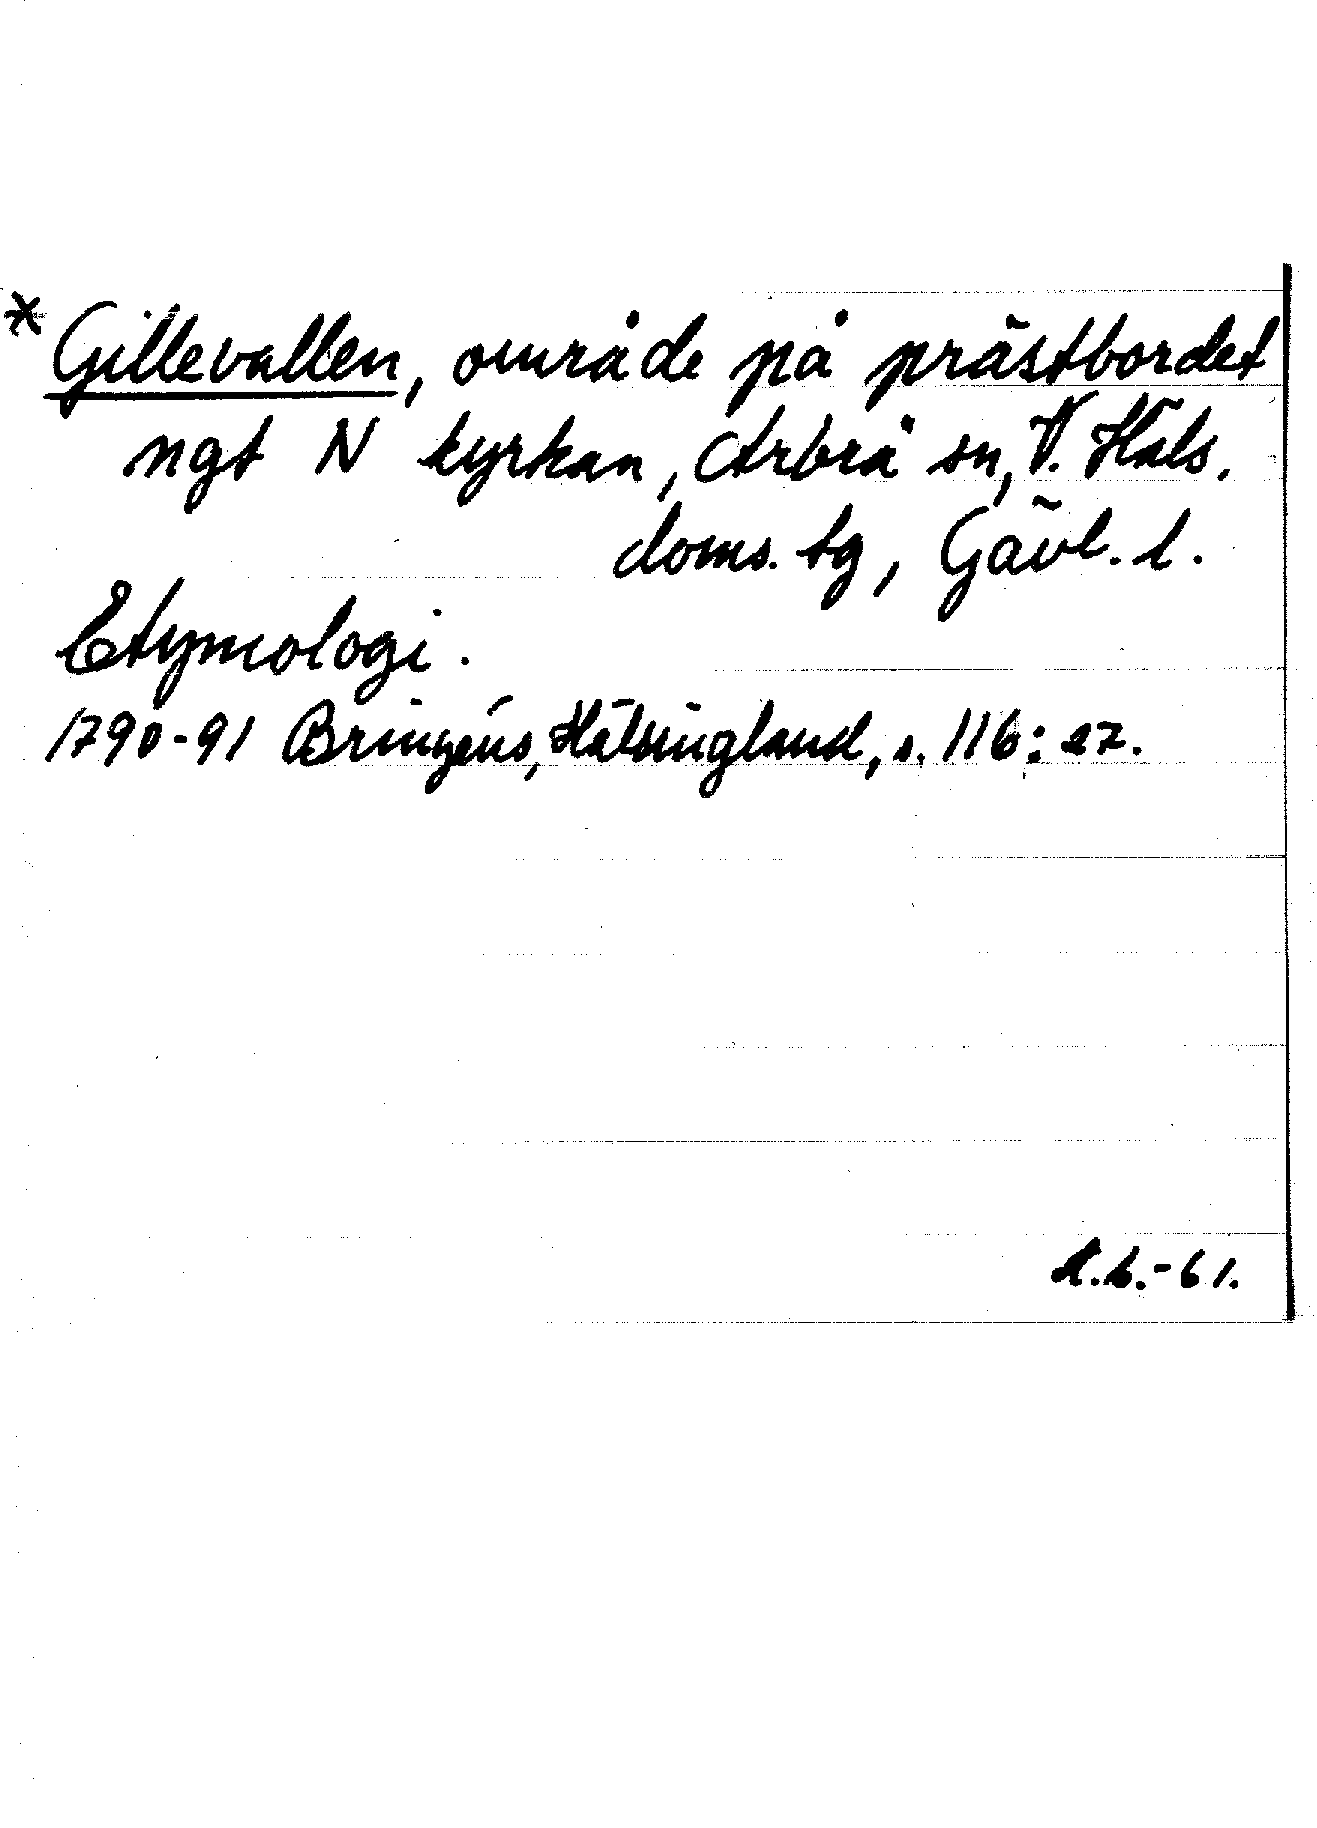 * Gillevallen, område på prästbordet
ngt N kyrkan, Arbrå sn, V. Häls.
doms. tg, Gävl. l.
Etymologi.
1790-91 Bringéus, Hälsingland, s. 116: 27.
-61.